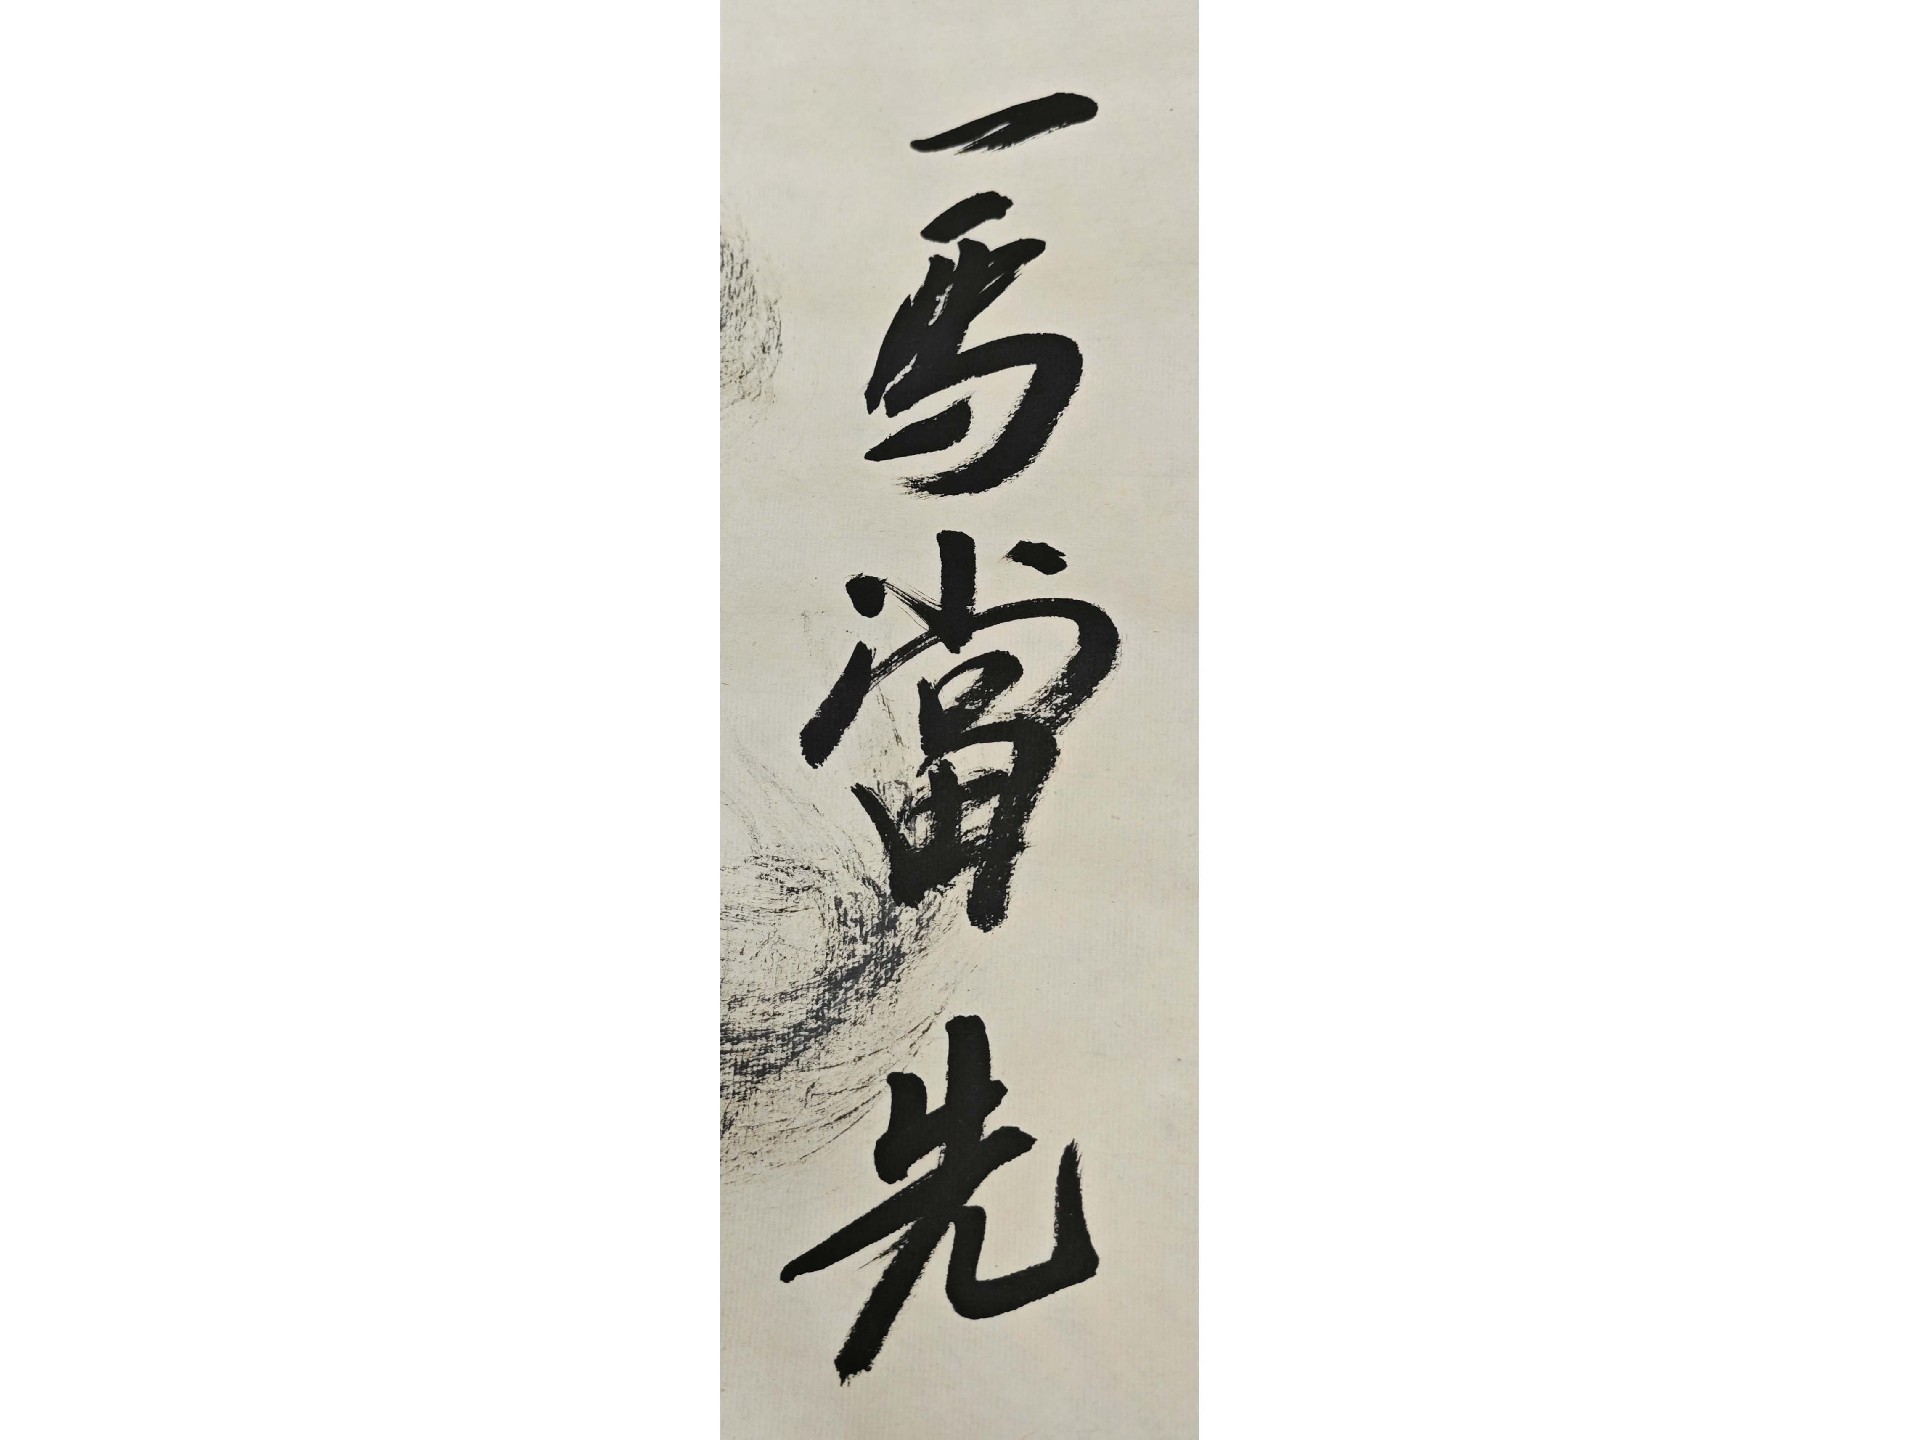 一馬當先